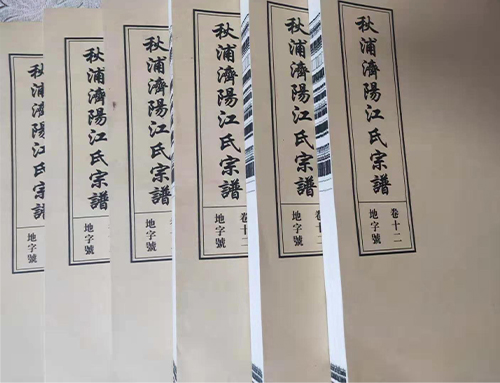 秋浦濟陽江氏宗譜
地字號
秋浦濟陽江氏宗譜
地字號
秋浦濟陽江氏宗譜
地字號
秋浦濟陽江氏宗譜
卷十二
地字號
秋浦濟陽江氏宗譜
卷十二
地字號
秋浦濟陽江氏宗譜
卷十二
地字號